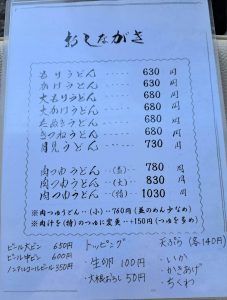 おしながき
もりうどん・・・・630円
かけうどん・・・・630円
大もりうどん・・・680円
大かけうどん・・・680円
たぬきうどん・・・680円
きつねうどん・・・680円
月見うどん・・・・730円
肉つゆうどん・・(並)・・780円
肉つゆうどん・・(大)・・830円
肉つゆうどん・・(特)・・1030円
※肉つゆうどん・・(小)・・760円(並のめん少なめ)
※肉汁を(特)のつゆに変更・・+150円(つゆ多め)
ビール大ビン 650円
ビール中ビン 600円
ノンアルコールビール 350円
トッピング
・生卵 100円
・大根おろし 50円
天ぷら(各140円)
・いか
・かきあげ
・ちくわ